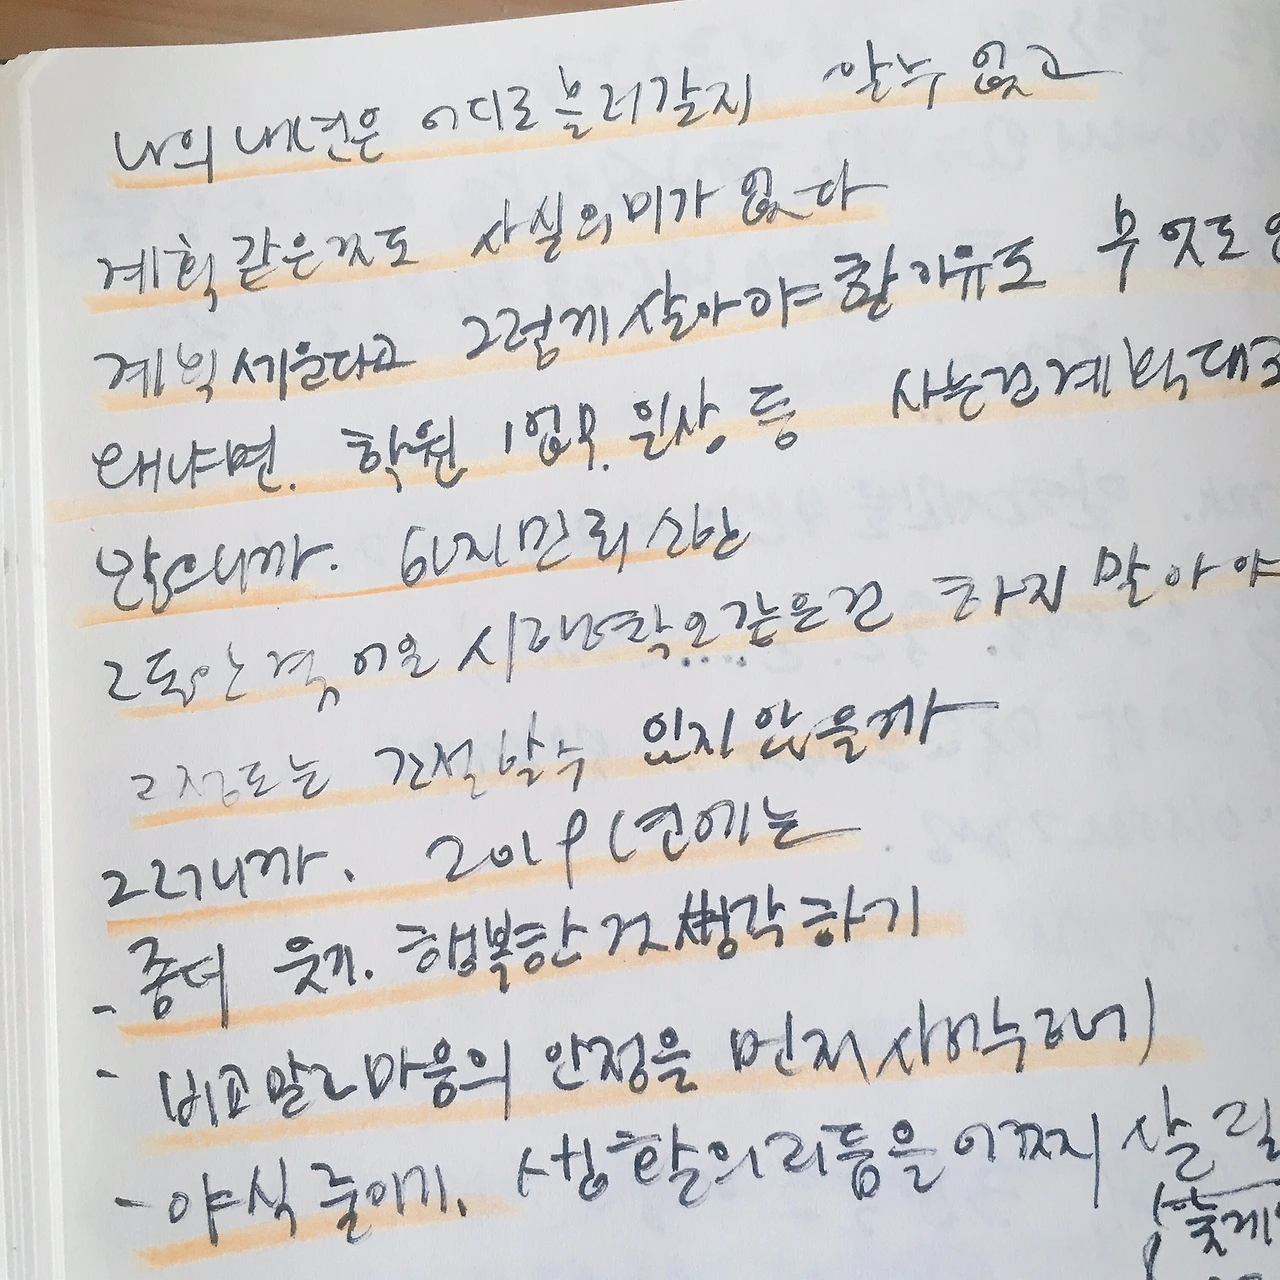 나의 내년은 어디로 불러갈지 알수 없고
계획 같은것도 사실 의미가 없다
계획 세운다고 그렇게 살아야 할 자유도 무엇도
왜냐면. 학원, 업무, 일상 등 사는건 계획대로
않으니까.
그동안 겪어온 같은건 하지 말아야
그정도는 할수 있지 않을까
그러니까. 2019년에는
- 좀더 웃기. 행복한 것 생각하기
- 비교말고 마음의 안정을 먼저
- 야식 줄이기. 생활의 리듬을 살릴